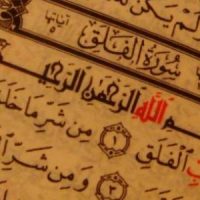 وَلَمْ يَكُن
سُورَةُ الْفَلَقِ آيَاتُهَا
اللَّهِ الرَّحْمَٰنِ الرَّحِيمِ
الْفَلَقِ ١ مِن شَرِّ مَا
٢ وَمِن شَرِّ